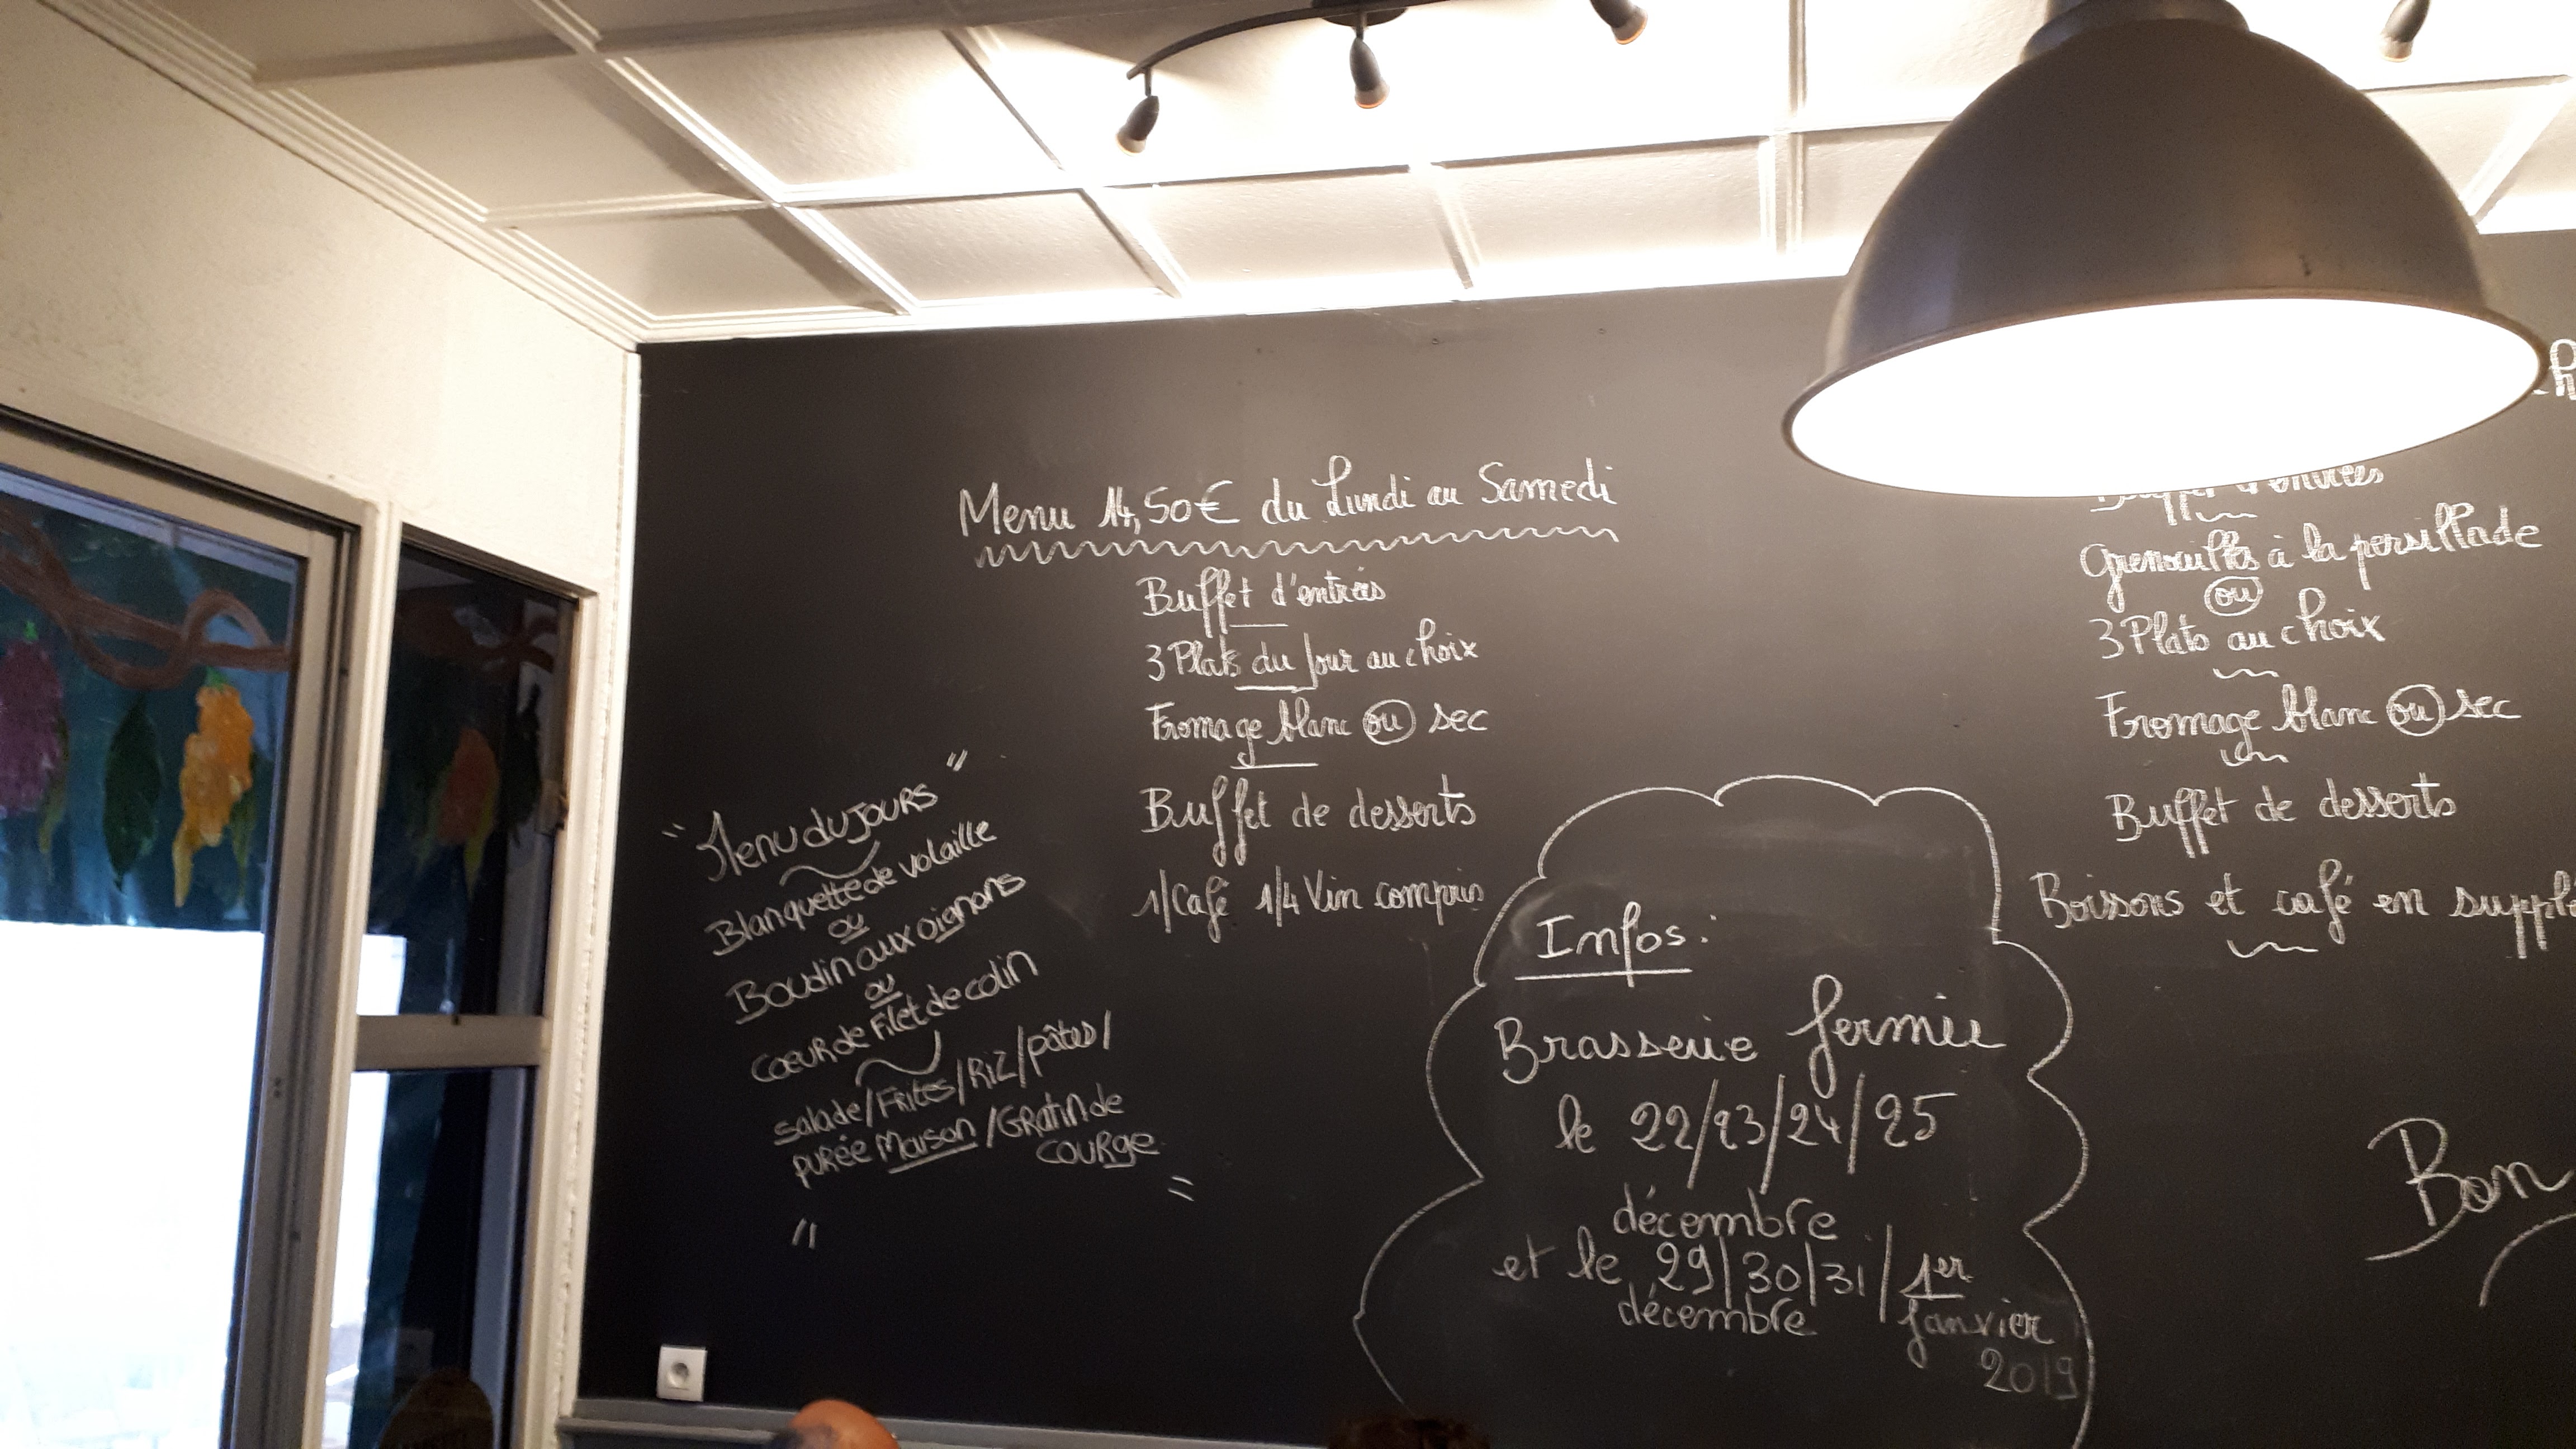 Menu 14,50€ du Lundi au Samedi
Buffet d'entrées
3 Plats du Jour au choix
Fromage blanc ou sec
Buffet de desserts
1/Café 1/4 Vin compris
" Menu du jours "
Blanquette de volaille
ou
Boudin aux oignons
ou
Coeur de Filet de colin
salade/Frites/Riz/pâtes/
purée Maison/Gratin de
courge
Infos:
Brasserie fermée
le 22/23/24/25
décembre
et le 29/30/31/1er
décembre janvier
2019
Grenouilles à la persillade
ou
3 Plats au choix
Fromage blanc ou sec
Buffet de desserts
Boissons et café en
Bon